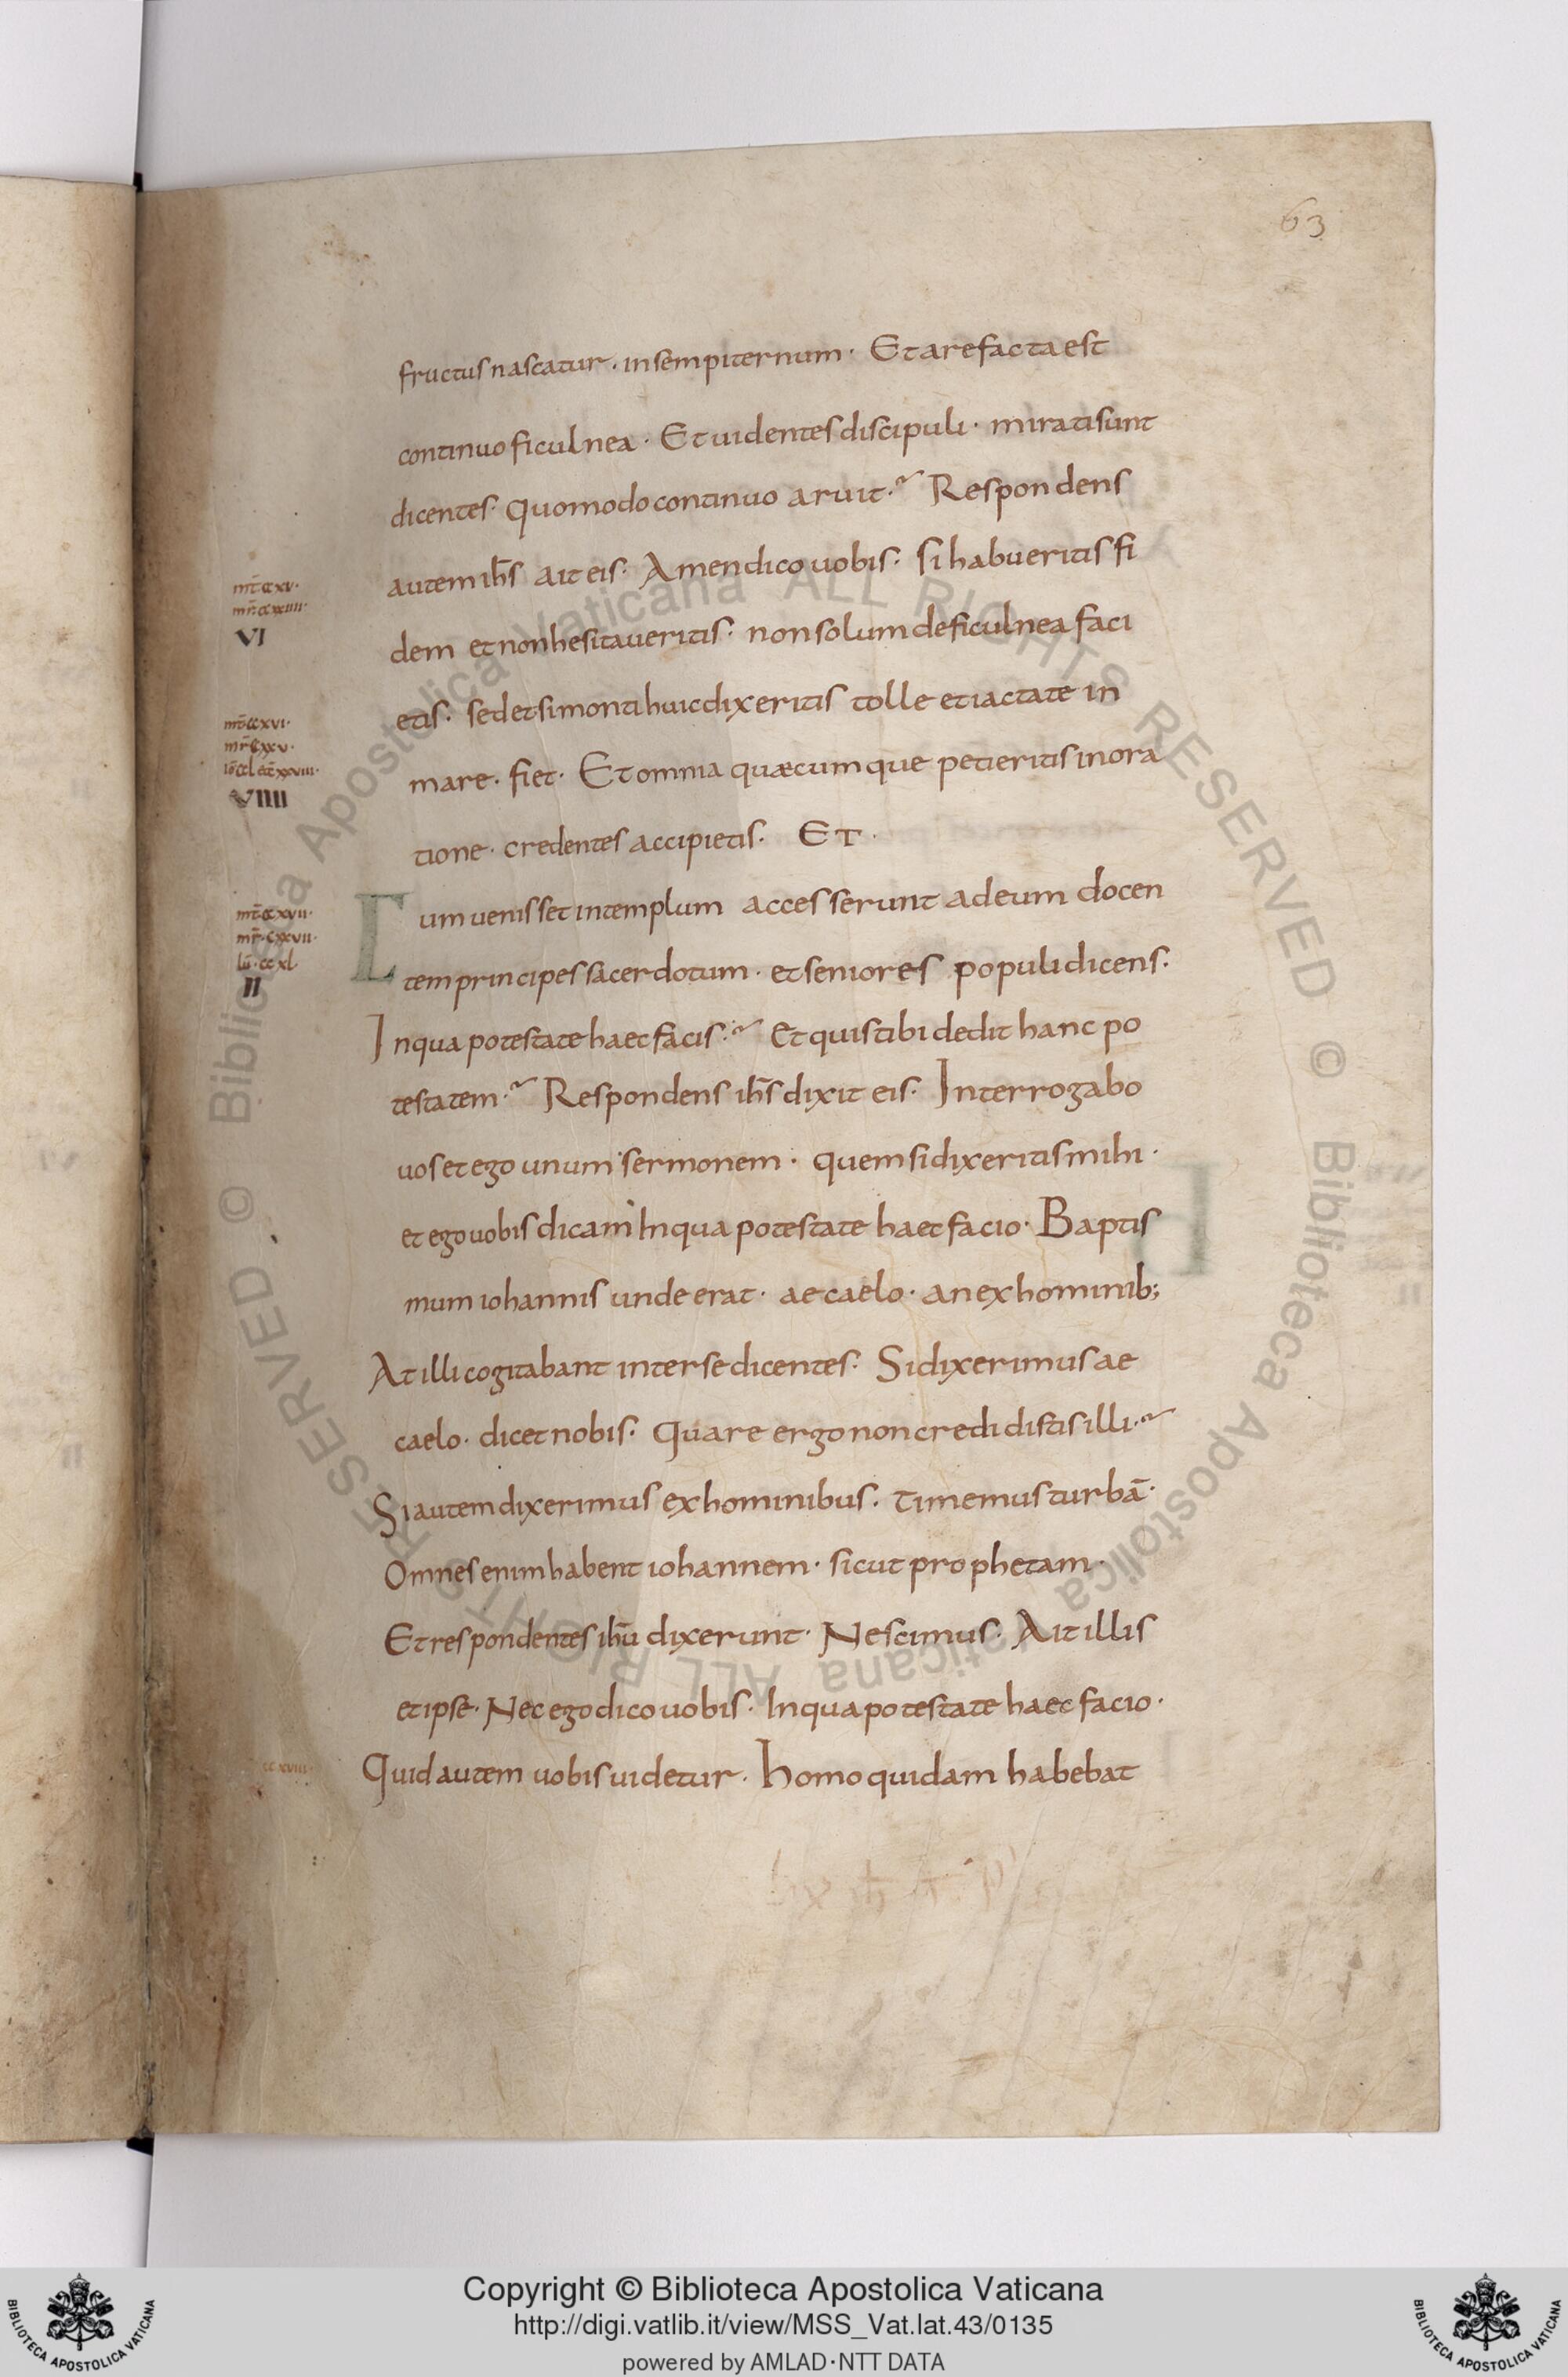 63
fructus nascatur · in sempiternum · Et arefacta est
continuo ficulnea · Et uidentes discipuli · mirati sunt
dicentes · Quomodo continuo aruit ·~ Respondens
autem ihs̄ ait eis · Amen dico uobis · si habueritis fi
dem et non hesitaueritis · non solum de ficulnea faci
etis · sed et si monti huic dixeritis tolle et iactate in
mare · fiet · Et omnia quæcumque petieritis in ora
tione · credentes accipietis · ET ·
Cum uenisset in templum accesserunt ad eum docen
tem principes sacerdotum · et seniores populi dicens ·
In qua potestate haec facis ·~ Et quis tibi dedit hanc po
testatem ·~ Respondens ihs̄ dixit eis · Interrogabo
uos et ego unum sermonem · quem si dixeritis mihi ·
et ego uobis dicam In qua potestate haec facio · Baptis
mum iohannis unde erat · ae caelo · an ex hominib;
At illi cogitabant inter se dicentes · Si dixerimus ae
caelo · dicet nobis · Quare ergo non credidistis illi ·~
Si autem dixerimus ex hominibus · timemus turbā ·
Omnes enim habent iohannem · sicut prophetam ·
Et respondentes ihū dixerunt · Nescimus · Ait illis
et ipse · Nec ego dico uobis · In qua potestate haec facio ·
Quid autem uobis uidetur · homo quidam habebat
mt̄ · ccxv ·
mr̄ · cxxiiii ·
VI
mt̄ ccxvi ·
mr̄ cxxv ·
VIIII
mt̄ · ccxvii ·
mr̄ · cxxvii ·
lū · ccxl ·
II
ccxviii ·
© Biblioteca Apostolica Vaticana ALL RIGHTS RESERVED
© Biblioteca Apostolica Vaticana ALL RIGHTS RESERVED
Copyright © Biblioteca Apostolica Vaticana
http://digi.vatlib.it/view/MSS_Vat.lat.43/0135
powered by AMLAD·NTT DATA
BIBLIOTECA APOSTOLICA VATICANA
BIBLIOTECA APOSTOLICA VATICANA